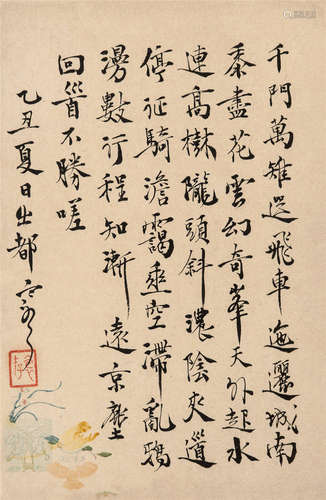 千門萬雉迅飛車迤邐城南
黍盡花雲幻奇峯天外起水
連高樹隴頭斜濃陰夾道
停征騎澹靄垂空滯亂鴉
漫數行程知漸遠京塵
回首不勝嗟
乙丑夏日出都